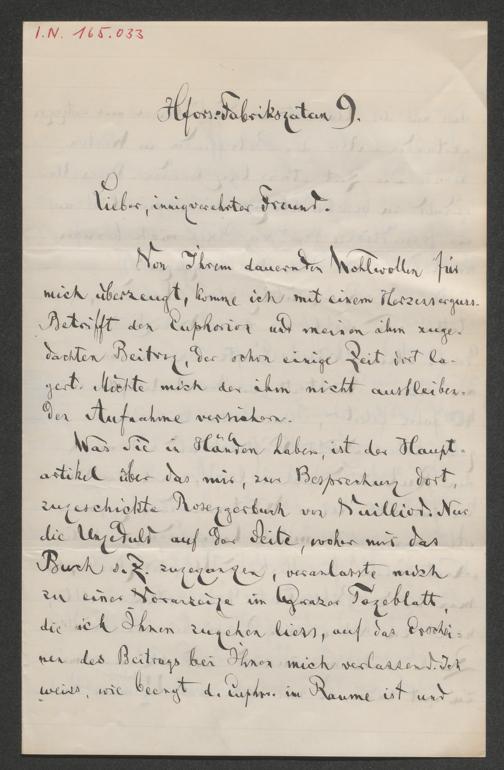 I.N. 165.033
Hfors. Fabriksgatan 9.
Lieber, innigverehrter Freund.
Von Ihrem dauernden Wohlwollen für
mich überzeugt, komme ich mit einem Herzenserguss.
Betrifft den Euphorion und meinen ihm zuge-
dachten Beitrag, der schon einige Zeit dort la-
gert. Möchte mich der ihm nicht ausbleiben-
den Aufnahme versichern.
Was Sie in Händen haben, ist der Haupt-
artikel über das mir, zur Besprechung dort,
zugeschickte Roseggerbuch von Vulliod. Nur
die Ungeduld auf der Seite, woher mir das
Buch s. Z. zugegangen, veranlasste mich
zu einer Voranzeige im Grazer Tageblatt,
die ich Ihnen zugehen liess, auf das Erschei-
nen des Beitrags bei Ihnen mich verlassend. Ich
weiss, wie beengt d. Euphor. im Raume ist und